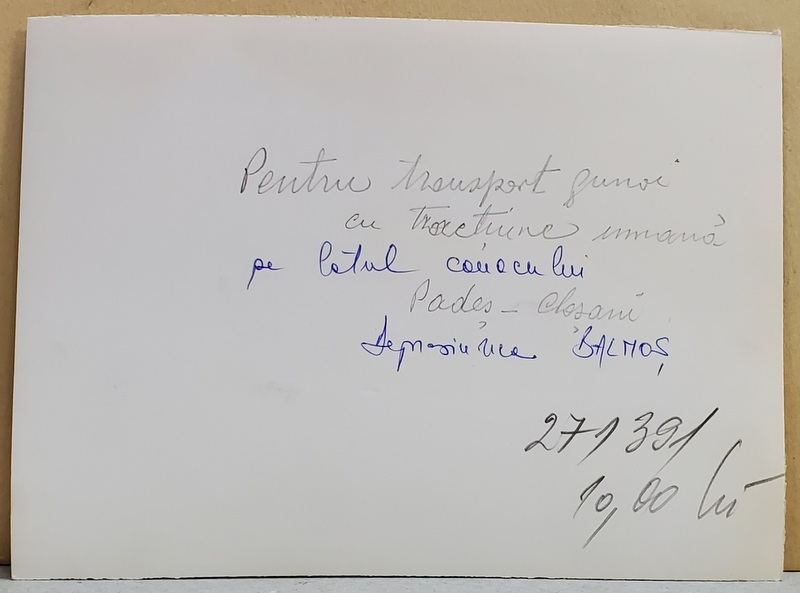 Pentru transport gunoi
cu tracțiune umană
pe lotul conacului
Padeș - Cloșani
Depresiunea BALMOȘ
271391
10,00 lei